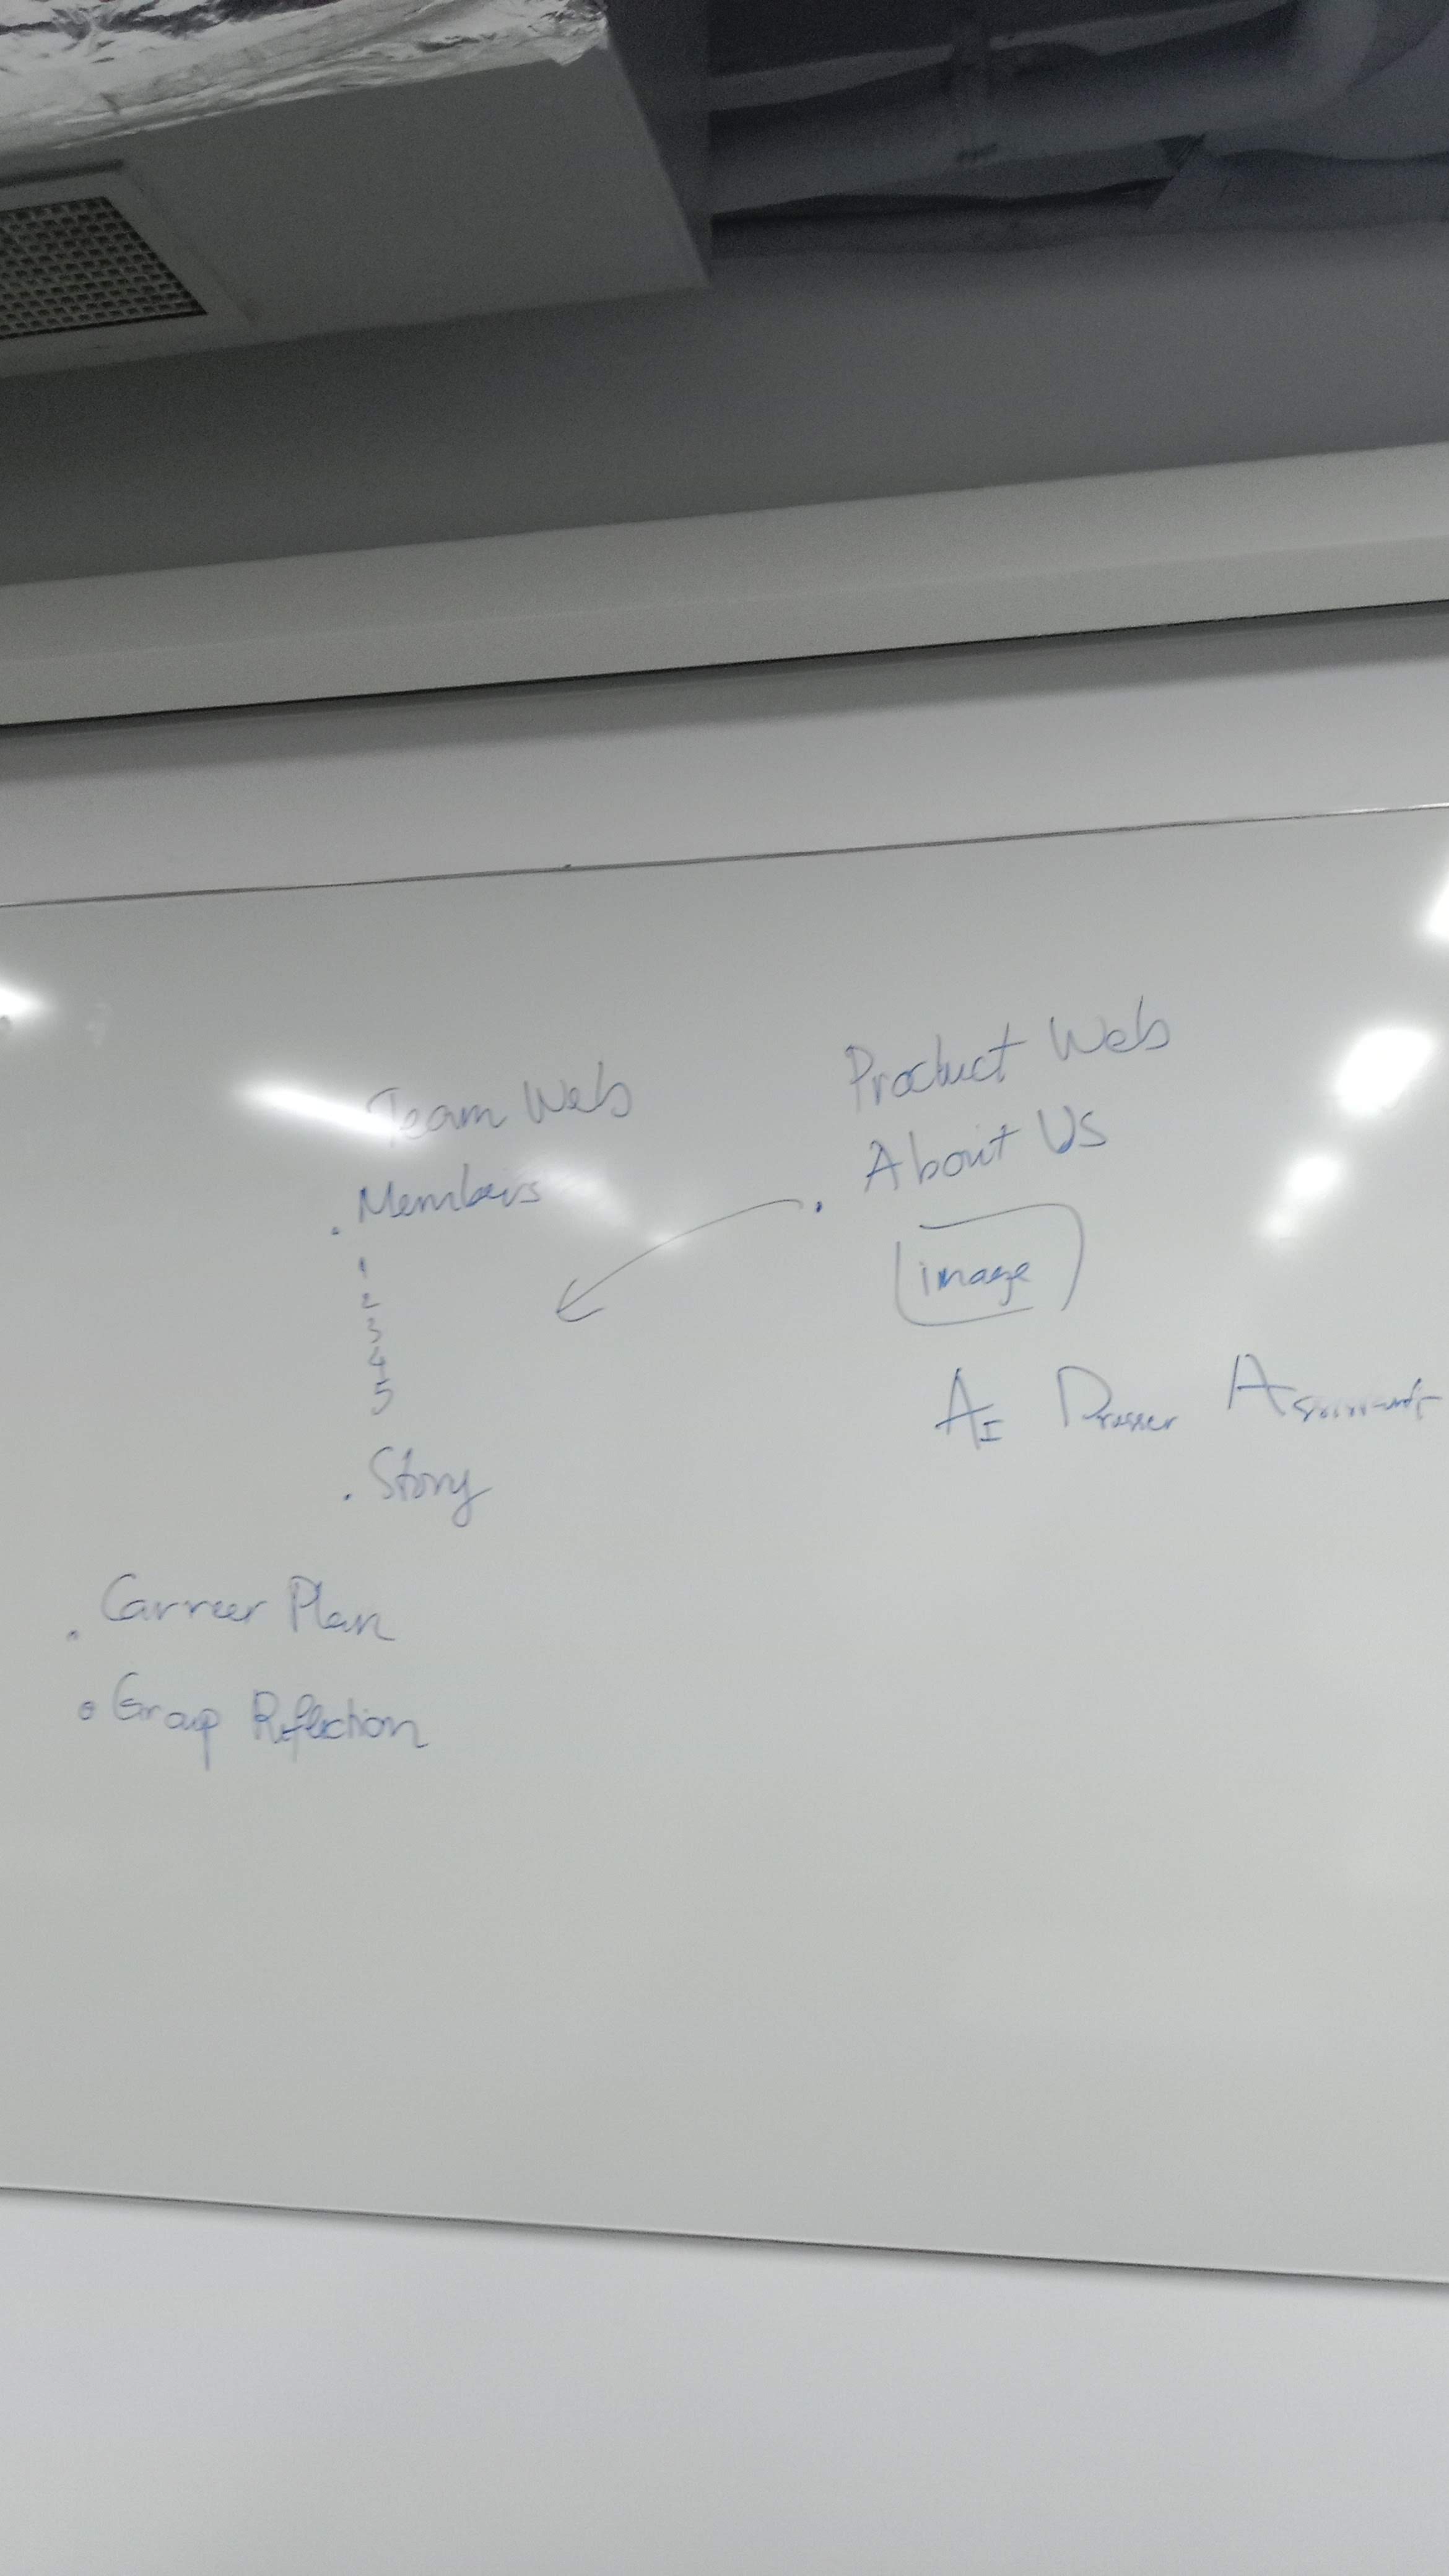 Team Web
. Members
1
2
3
4
5
. Story
. Carreer Plan
• Group Reflection
Product Web
. About Us
image
AI Dresser